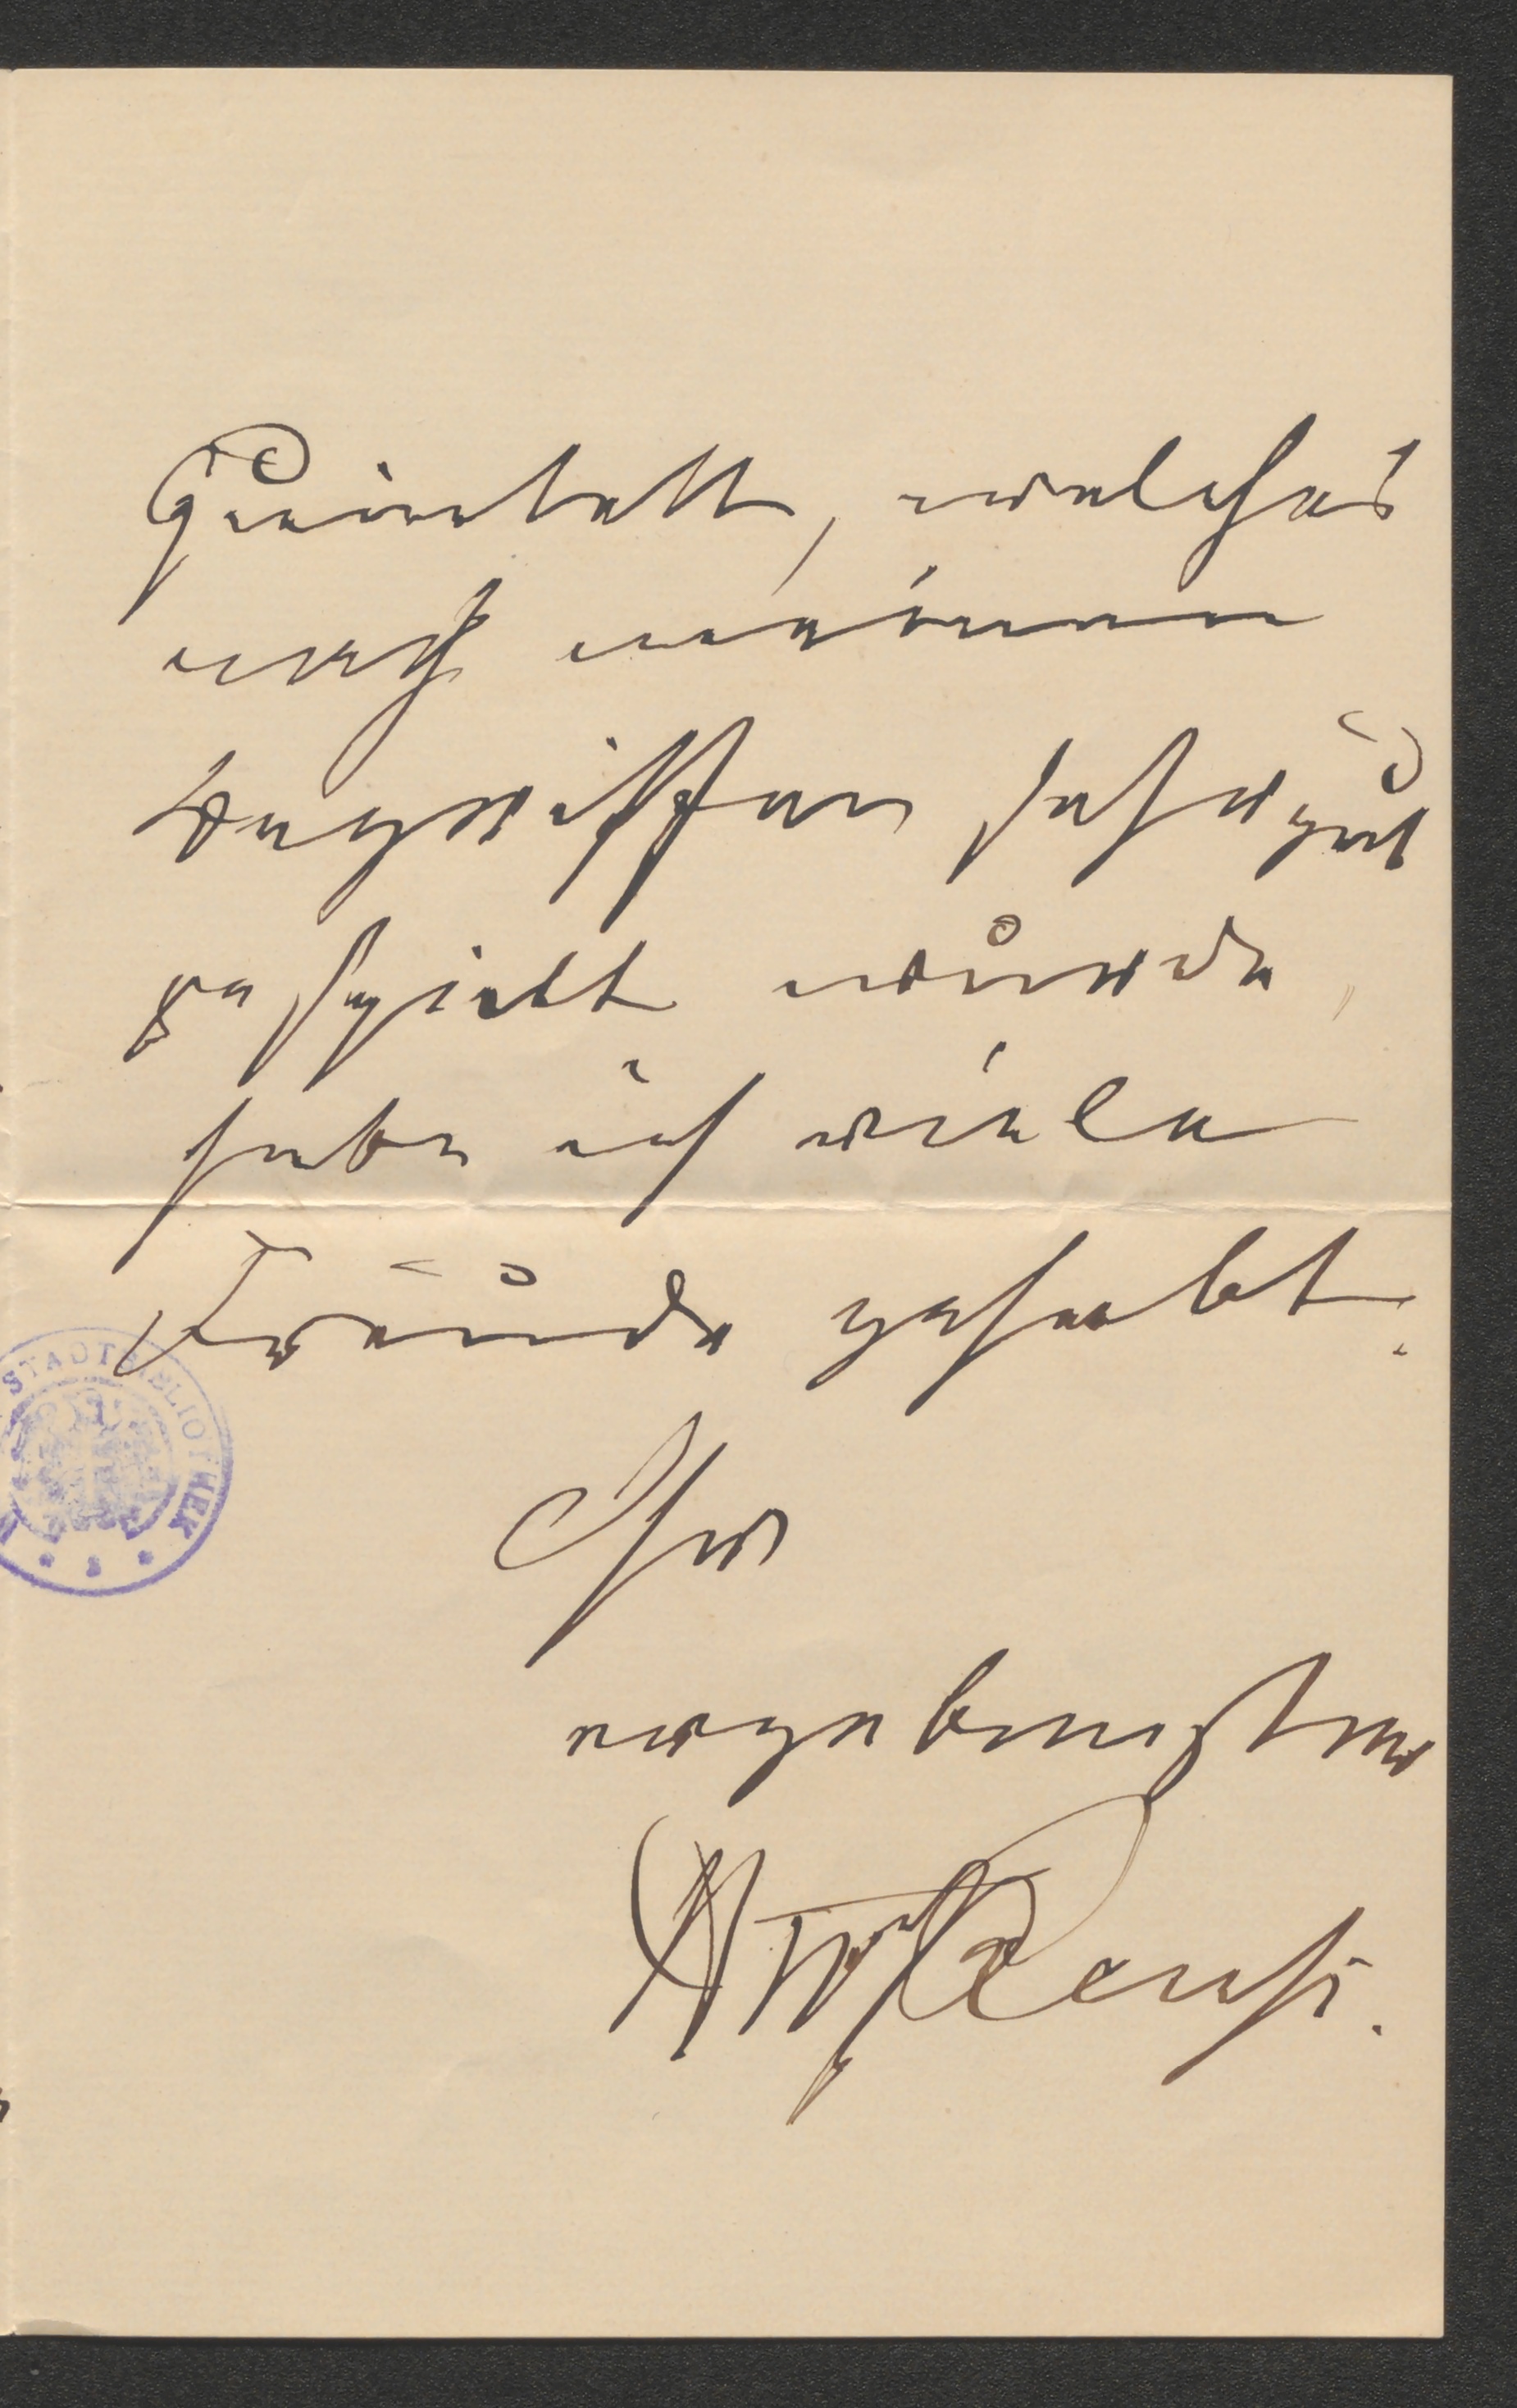 Quintett, welches
nach meinen
Begriffen sehr gut
gespielt wurde,
habe ich viele
Freude gehabt.
Ihr
ergebenster
STADTBIBLIOTHEK